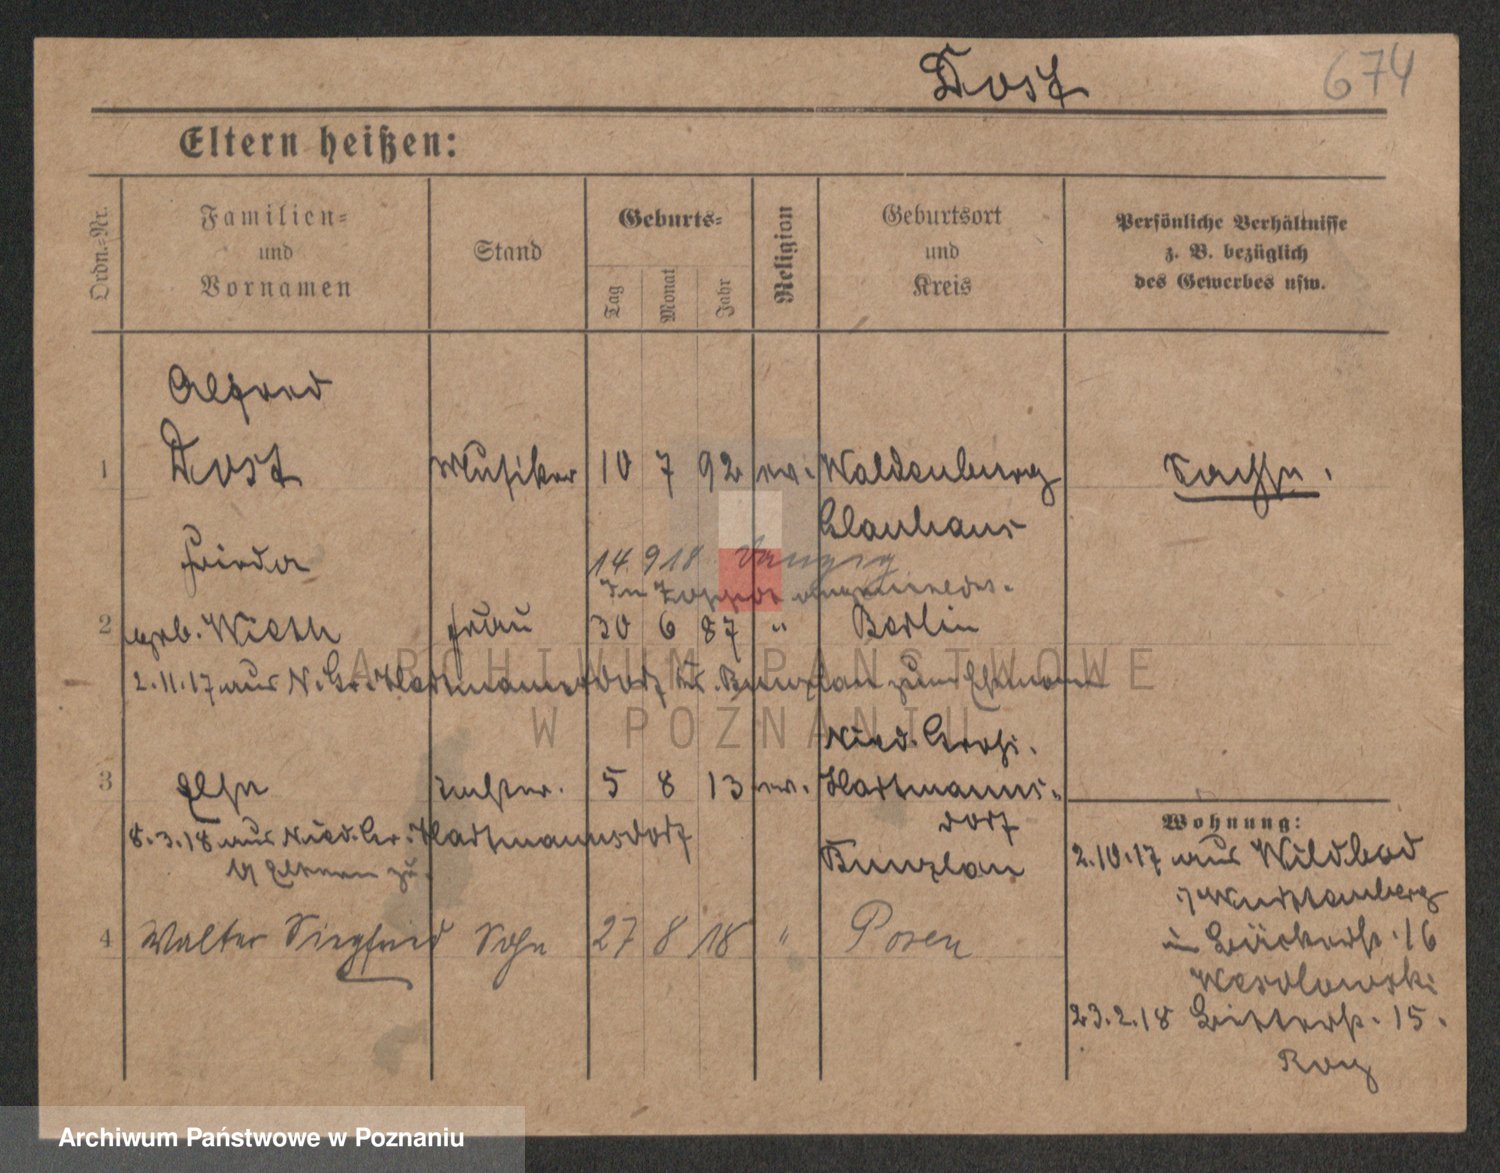 Dost 674
Eltern heißen:
Ordn.-Nr.
Familien-
und
Vornamen
Stand
Geburts-
Tag
Monat
Jahr
Religion
Geburtsort
und
Kreis
Persönliche Verhältnisse
z. B. bezüglich
des Gewerbes usw.
Alfred
1 Dost Musiker 10 7 92 ev. Waldenburg Sachse.
Glauhaus
Frieda
14.9.18 Danzig
In Zoppot angemeldet.
2 geb. Wieth Frau 30 6 87 " Berlin
2.11.17 aus N. Gr. Hartmannsdorf Kr. Bunzlau zum Ehemann
Nied. Groß.
3 Else Tochter. 5 8 13 ev. Hartmanns-
dorf
8.3.18 aus Nied. Gr. Hartmannsdorf
Eltern zu.
Bunzlau
Wohnung:
2.10.17 aus Wildbad
i/ Württemberg
in Bäckerstr. 16
Wesolowski
4 Walter Siegfried Sohn 27 8 18 " Posen
23.2.18 Bitterstr. 15.
Roy
ARCHIWUM PAŃSTWOWE
W POZNANIU
Archiwum Państwowe w Poznaniu